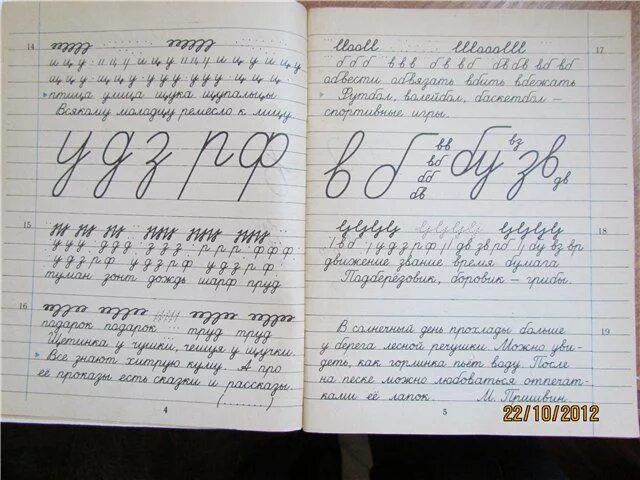 14
и ц у
птица улица щука щупальцы
Всякому молодцу ремесло к лицу.
у д з р ф
15
у у у д д д з з з р р р ф ф ф
у д з р ф у д з р ф у д з р ф
туман зонт дождь шарф пруд
16
подарок подарок труд труд
Щетинка у чушки, чешуя у щучки.
Все знают хитрую куму. А про
её проказы есть сказки и рассказы.
(..........)
4
17
б б б в в в б в в б в б
обвести обвязать вбить вбежать
Футбол, волейбол, баскетбол –
спортивные игры.
в б вв вб бб бв бу вз зв дв
18
в б у д з р ф дв зв рб бу вз вр
движение звание время бумага
Подберёзовик, боровик – грибы.
19
В солнечный день прохлады больше
у берега лесной речушки. Можно уви-
деть, как горлинка пьёт воду. После
на песке можно любоваться отпечат-
ками её лапок. М. Пришвин
5
22/10/2012